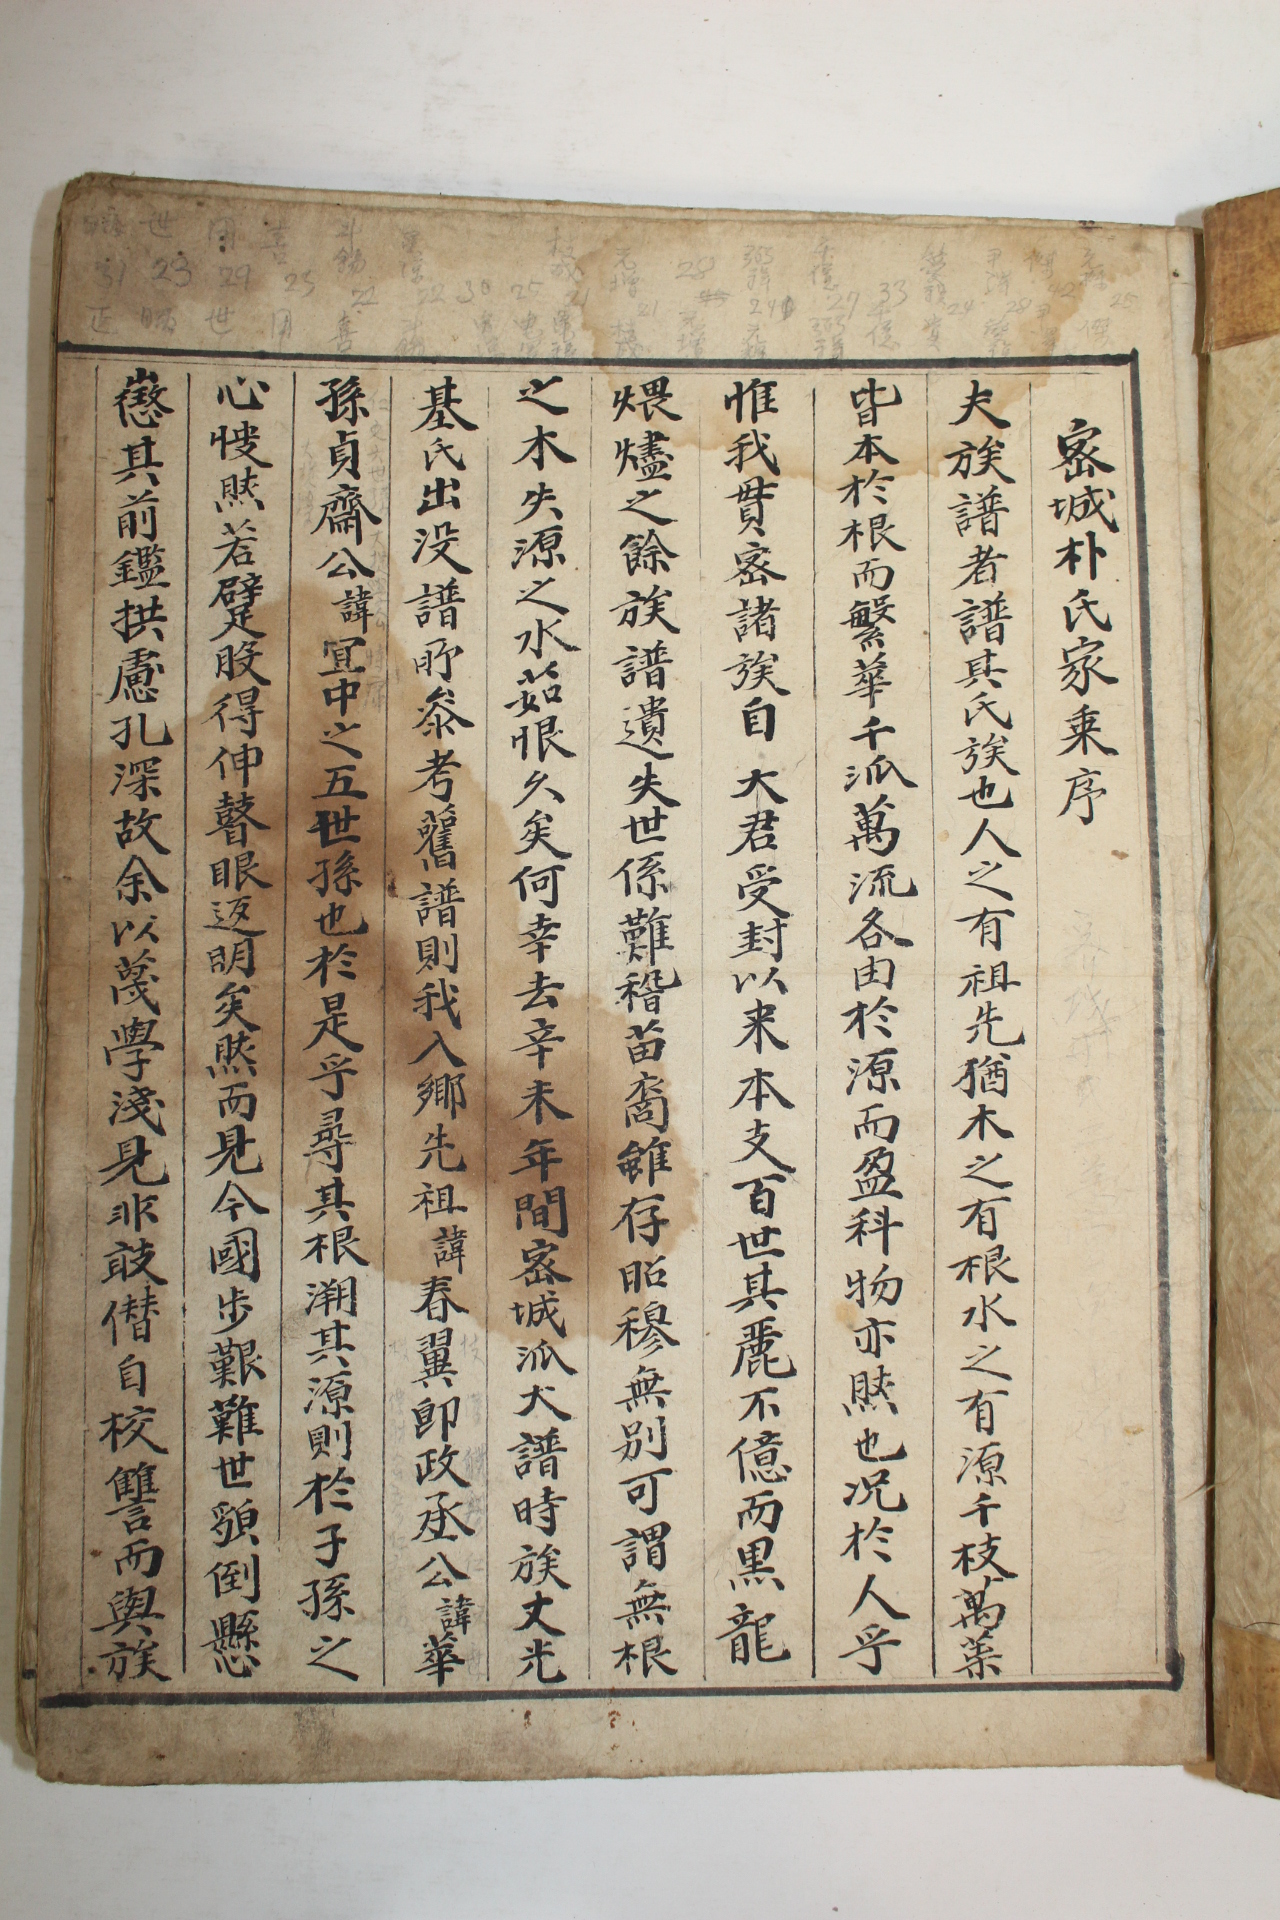 密城朴氏家乗序
夫族譜者譜其氏族也人之有祖先猶木之有根水之有源千枝萬葉
皆本於根而繁華千派萬流各由於源而盈科物亦然也况於人乎
惟我貫密諸族自 大君受封以来本支百世其麗不億而黒龍
煨燼之餘族譜遺失世係難稽苗裔雖存昭穆無別可謂無根
之木失源之水茹恨久矣何幸去辛未年間密城派大譜時族丈光
基氏出没譜所叅考舊譜則我入鄉先祖諱春翼即政丞公諱華
孫貞齋公諱冝中之五世孫也於是乎尋其根溯其源則於子孫之
心愯然若躄股得伸瞽眼返明矣然而見今國步艱難世頟倒懸
懲其前鑑拱慮孔深故余以蔑學淺見非敢僣自校讐而與族
31 23 29 25 22 22 30 25 21 21 28 24 27 33 24 28 42 25
世 用 喜